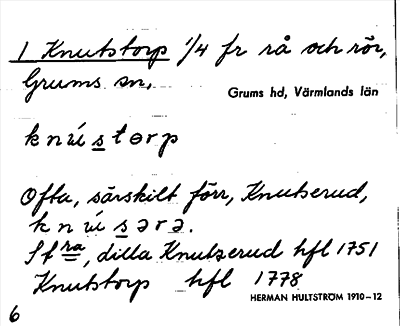 1 Knutstorp 1/4 fr rå och rör,
Grums sn.
Grums hd, Värmlands län
knústorp
Ofta, särskilt förr, Knutserud,
knúsərə.
Sf ra, dilla Knutserud hfl 1751
Knutstorp hfl 1778
HERMAN HULTSTRÖM 1910–12
6